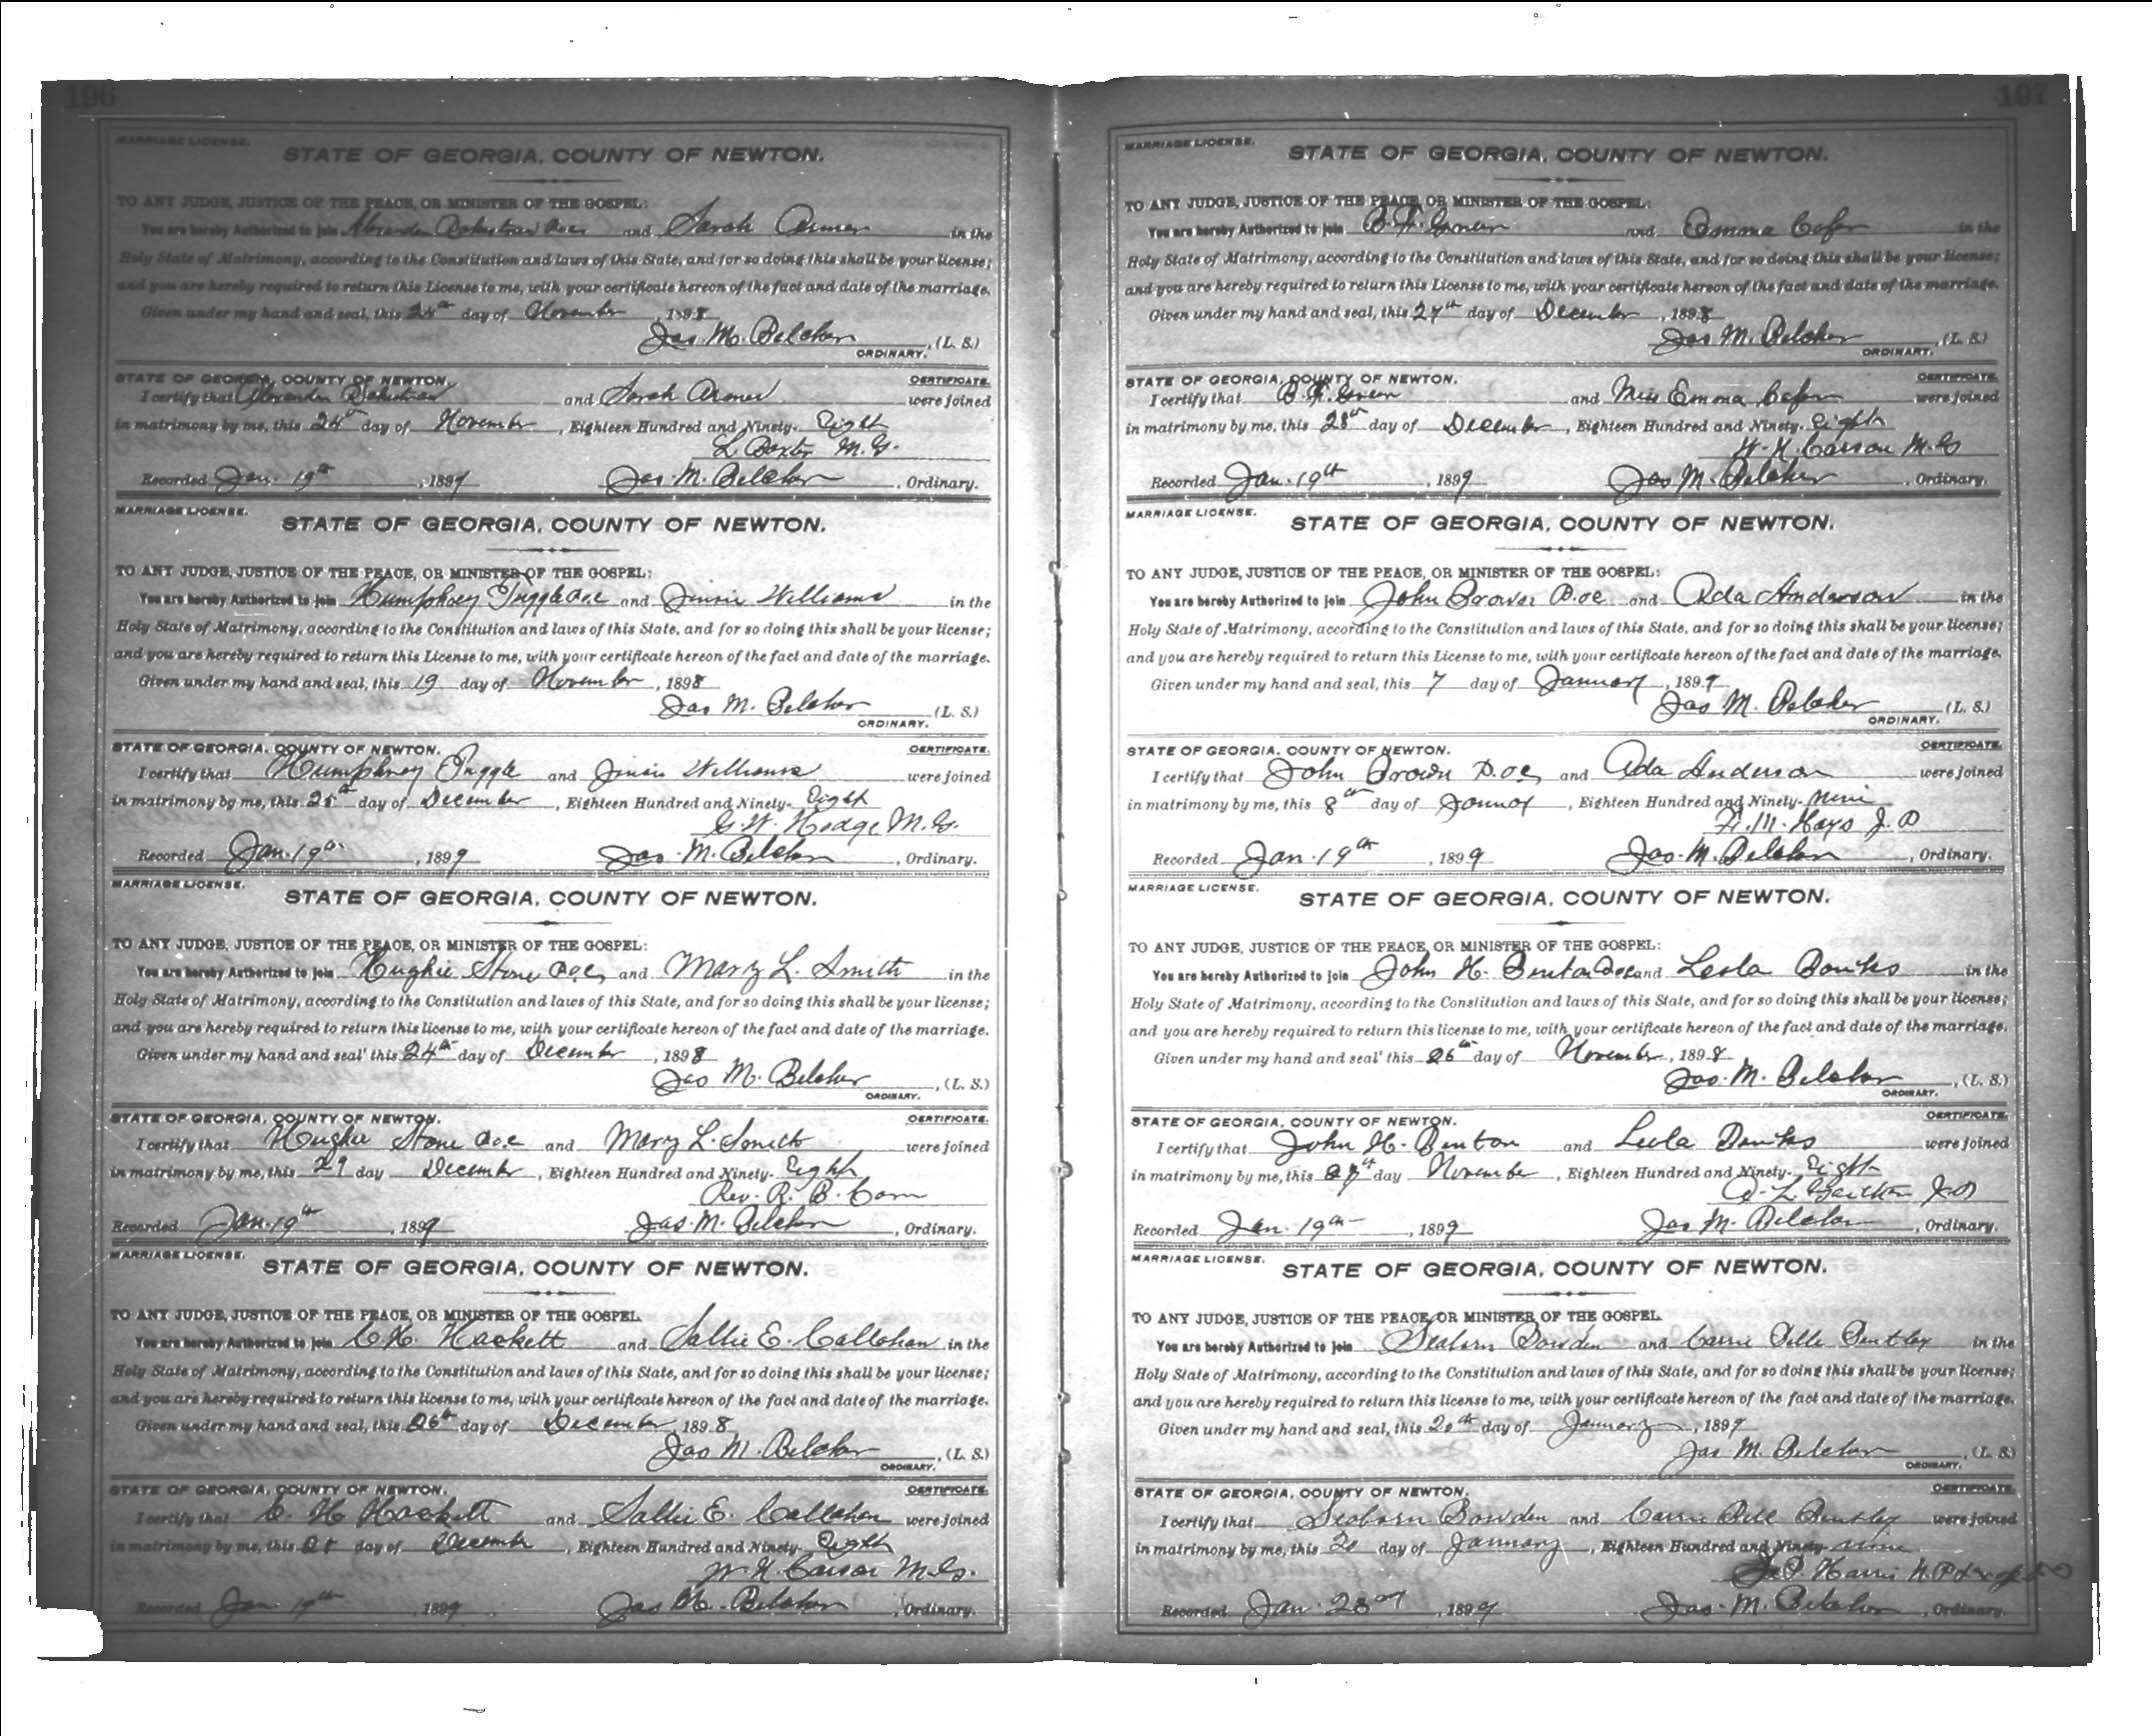 196
MARRIAGE LICENSE.
STATE OF GEORGIA, COUNTY OF NEWTON.
TO ANY JUDGE, JUSTICE OF THE PEACE, OR MINISTER OF THE GOSPEL:
You are hereby Authorized to join Alexander and Sarah in the
Holy State of Matrimony, according to the Constitution and laws of this State, and for so doing this shall be your license;
and you are hereby required to return this License to me, with your certificate hereon of the fact and date of the marriage.
Given under my hand and seal, this 24th day of November, 1898
Jas. M. Belcher, (L. S.)
ORDINARY.
STATE OF GEORGIA, COUNTY OF NEWTON. CERTIFICATE.
I certify that Alexander and Sarah were joined
in matrimony by me, this 24th day of November, Eighteen Hundred and Ninety-Eight
L. Baxter M.G.
Recorded Jan. 19th, 1899 Jas. M. Belcher, Ordinary.
MARRIAGE LICENSE.
STATE OF GEORGIA, COUNTY OF NEWTON.
TO ANY JUDGE, JUSTICE OF THE PEACE, OR MINISTER OF THE GOSPEL:
You are hereby Authorized to join Humphrey Tuggle and Jinsie Williams in the
Holy State of Matrimony, according to the Constitution and laws of this State, and for so doing this shall be your license;
and you are hereby required to return this License to me, with your certificate hereon of the fact and date of the marriage.
Given under my hand and seal, this 19 day of November, 1898
Jas M. Belcher (L. S.)
ORDINARY.
STATE OF GEORGIA, COUNTY OF NEWTON. CERTIFICATE.
I certify that Humphrey Tuggle and Jinsie Williams were joined
in matrimony by me, this 25th day of December, Eighteen Hundred and Ninety-Eight
G. W. Hodge M.G.
Recorded Jan. 19th, 1899 Jas. M. Belcher, Ordinary.
MARRIAGE LICENSE.
STATE OF GEORGIA, COUNTY OF NEWTON.
TO ANY JUDGE, JUSTICE OF THE PEACE, OR MINISTER OF THE GOSPEL:
You are hereby Authorized to join Hughie Stone and Mary L. Smith in the
Holy State of Matrimony, according to the Constitution and laws of this State, and for so doing this shall be your license;
and you are hereby required to return this license to me, with your certificate hereon of the fact and date of the marriage.
Given under my hand and seal' this 24th day of December, 1898
Jas M. Belcher, (L. S.)
ORDINARY.
STATE OF GEORGIA, COUNTY OF NEWTON. CERTIFICATE.
I certify that Hughie Stone and Mary L. Smith were joined
in matrimony by me, this 29 day December, Eighteen Hundred and Ninety-Eight
Rev. R. B.
Recorded Jan. 19th, 1899 Jas. M. Belcher, Ordinary.
MARRIAGE LICENSE.
STATE OF GEORGIA, COUNTY OF NEWTON.
TO ANY JUDGE, JUSTICE OF THE PEACE, OR MINISTER OF THE GOSPEL
You are hereby Authorized to join C. H. Hackett and Sallie E. Callahan in the
Holy State of Matrimony, according to the Constitution and laws of this State, and for so doing this shall be your license;
and you are hereby required to return this license to me, with your certificate hereon of the fact and date of the marriage.
Given under my hand and seal, this 26th day of December, 1898
Jas M. Belcher, (L. S.)
ORDINARY.
STATE OF GEORGIA, COUNTY OF NEWTON. CERTIFICATE.
I certify that C. H. Hackett and Sallie E. Callahan were joined
in matrimony by me, this day of December, Eighteen Hundred and Ninety-Eight
W. H. Carson M.G.
Recorded Jan. 19th, 1899 Jas M. Belcher, Ordinary.
197
MARRIAGE LICENSE.
STATE OF GEORGIA, COUNTY OF NEWTON.
TO ANY JUDGE, JUSTICE OF THE PEACE, OR MINISTER OF THE GOSPEL:
You are hereby Authorized to join B. F. Green and Emma Cofer in the
Holy State of Matrimony, according to the Constitution and laws of this State, and for so doing this shall be your license;
and you are hereby required to return this License to me, with your certificate hereon of the fact and date of the marriage.
Given under my hand and seal, this 27th day of December, 1898
Jas M. Belcher, (L. S.)
ORDINARY.
STATE OF GEORGIA, COUNTY OF NEWTON. CERTIFICATE.
I certify that B. F. Green and Miss Emma Cofer were joined
in matrimony by me, this 28th day of December, Eighteen Hundred and Ninety-Eight
W. H. Carson M.G
Recorded Jan. 19th, 1899 Jas M. Belcher, Ordinary.
MARRIAGE LICENSE.
STATE OF GEORGIA, COUNTY OF NEWTON.
TO ANY JUDGE, JUSTICE OF THE PEACE, OR MINISTER OF THE GOSPEL:
You are hereby Authorized to join John Brown and Ada Anderson in the
Holy State of Matrimony, according to the Constitution and laws of this State, and for so doing this shall be your license;
and you are hereby required to return this License to me, with your certificate hereon of the fact and date of the marriage.
Given under my hand and seal, this 7 day of January, 1899
Jas M. Belcher (L. S.)
ORDINARY.
STATE OF GEORGIA, COUNTY OF NEWTON. CERTIFICATE.
I certify that John Brown and Ada Anderson were joined
in matrimony by me, this 8th day of January, Eighteen Hundred and Ninety-Nine
F. M. Hays J. P
Recorded Jan. 19th, 1899 Jas. M. Belcher, Ordinary.
MARRIAGE LICENSE.
STATE OF GEORGIA, COUNTY OF NEWTON.
TO ANY JUDGE, JUSTICE OF THE PEACE, OR MINISTER OF THE GOSPEL:
You are hereby Authorized to join John H. Benton and Leola Banks in the
Holy State of Matrimony, according to the Constitution and laws of this State, and for so doing this shall be your license;
and you are hereby required to return this license to me, with your certificate hereon of the fact and date of the marriage.
Given under my hand and seal' this 26th day of November, 1898
Jas. M. Belcher, (L. S.)
ORDINARY.
STATE OF GEORGIA, COUNTY OF NEWTON. CERTIFICATE.
I certify that John H. Benton and Leola Banks were joined
in matrimony by me, this 27th day November, Eighteen Hundred and Ninety-Eight
L. J.P
Recorded Jan. 19th, 1899 Jas M. Belcher, Ordinary.
MARRIAGE LICENSE.
STATE OF GEORGIA, COUNTY OF NEWTON.
TO ANY JUDGE, JUSTICE OF THE PEACE, OR MINISTER OF THE GOSPEL
You are hereby Authorized to join Seaborn Bowden and Carrie Belle Bentley in the
Holy State of Matrimony, according to the Constitution and laws of this State, and for so doing this shall be your license;
and you are hereby required to return this license to me, with your certificate hereon of the fact and date of the marriage.
Given under my hand and seal, this 20th day of January, 1899
Jas M. Belcher, (L. S.)
ORDINARY.
STATE OF GEORGIA, COUNTY OF NEWTON. CERTIFICATE.
I certify that Seaborn Bowden and Carrie Bell Bentley were joined
in matrimony by me, this 20 day of January, Eighteen Hundred and Ninety-nine
Harris N.P.
Recorded Jan. 1899 Jas. M. Belcher, Ordinary.